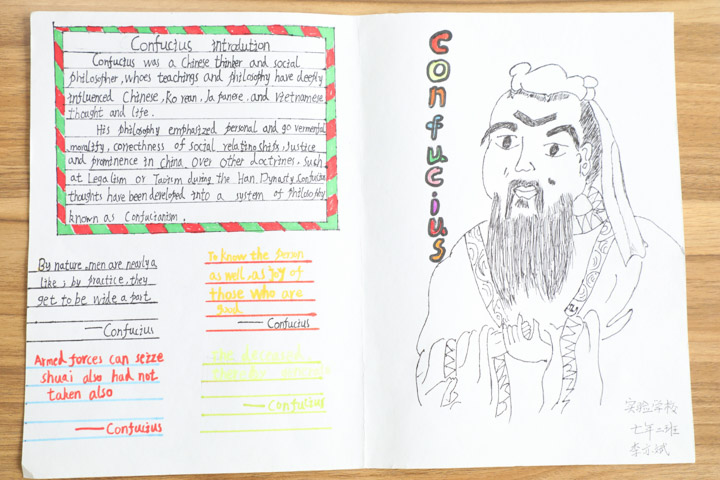 Confucius introdution
Confucius was a Chinese thinker and social
philosopher, whoes teachings and philosophy have deeply
influenced Chinese, Korean, Japanese, and Vietnamese
thought and life.
His philosophy emphasized personal and governmental
morality, correcthness of social relatingships, Justice
and prominence in China over other doctrines, such
at Legalism or Taoism during the Han Dynasty. Confucius
thoughts have been developed into a system of philosophy
known as Confucianism.
By nature, men are nearly a
like; by practice, they
get to be wide a part.
—Confucius
To know the person
as well, as joy of
those who are
good
—Confucius
Armed forces can seize
shuai also had not
taken also
—Confucius
—Confucius
confucius
实验学校
七年二班
李亦斌